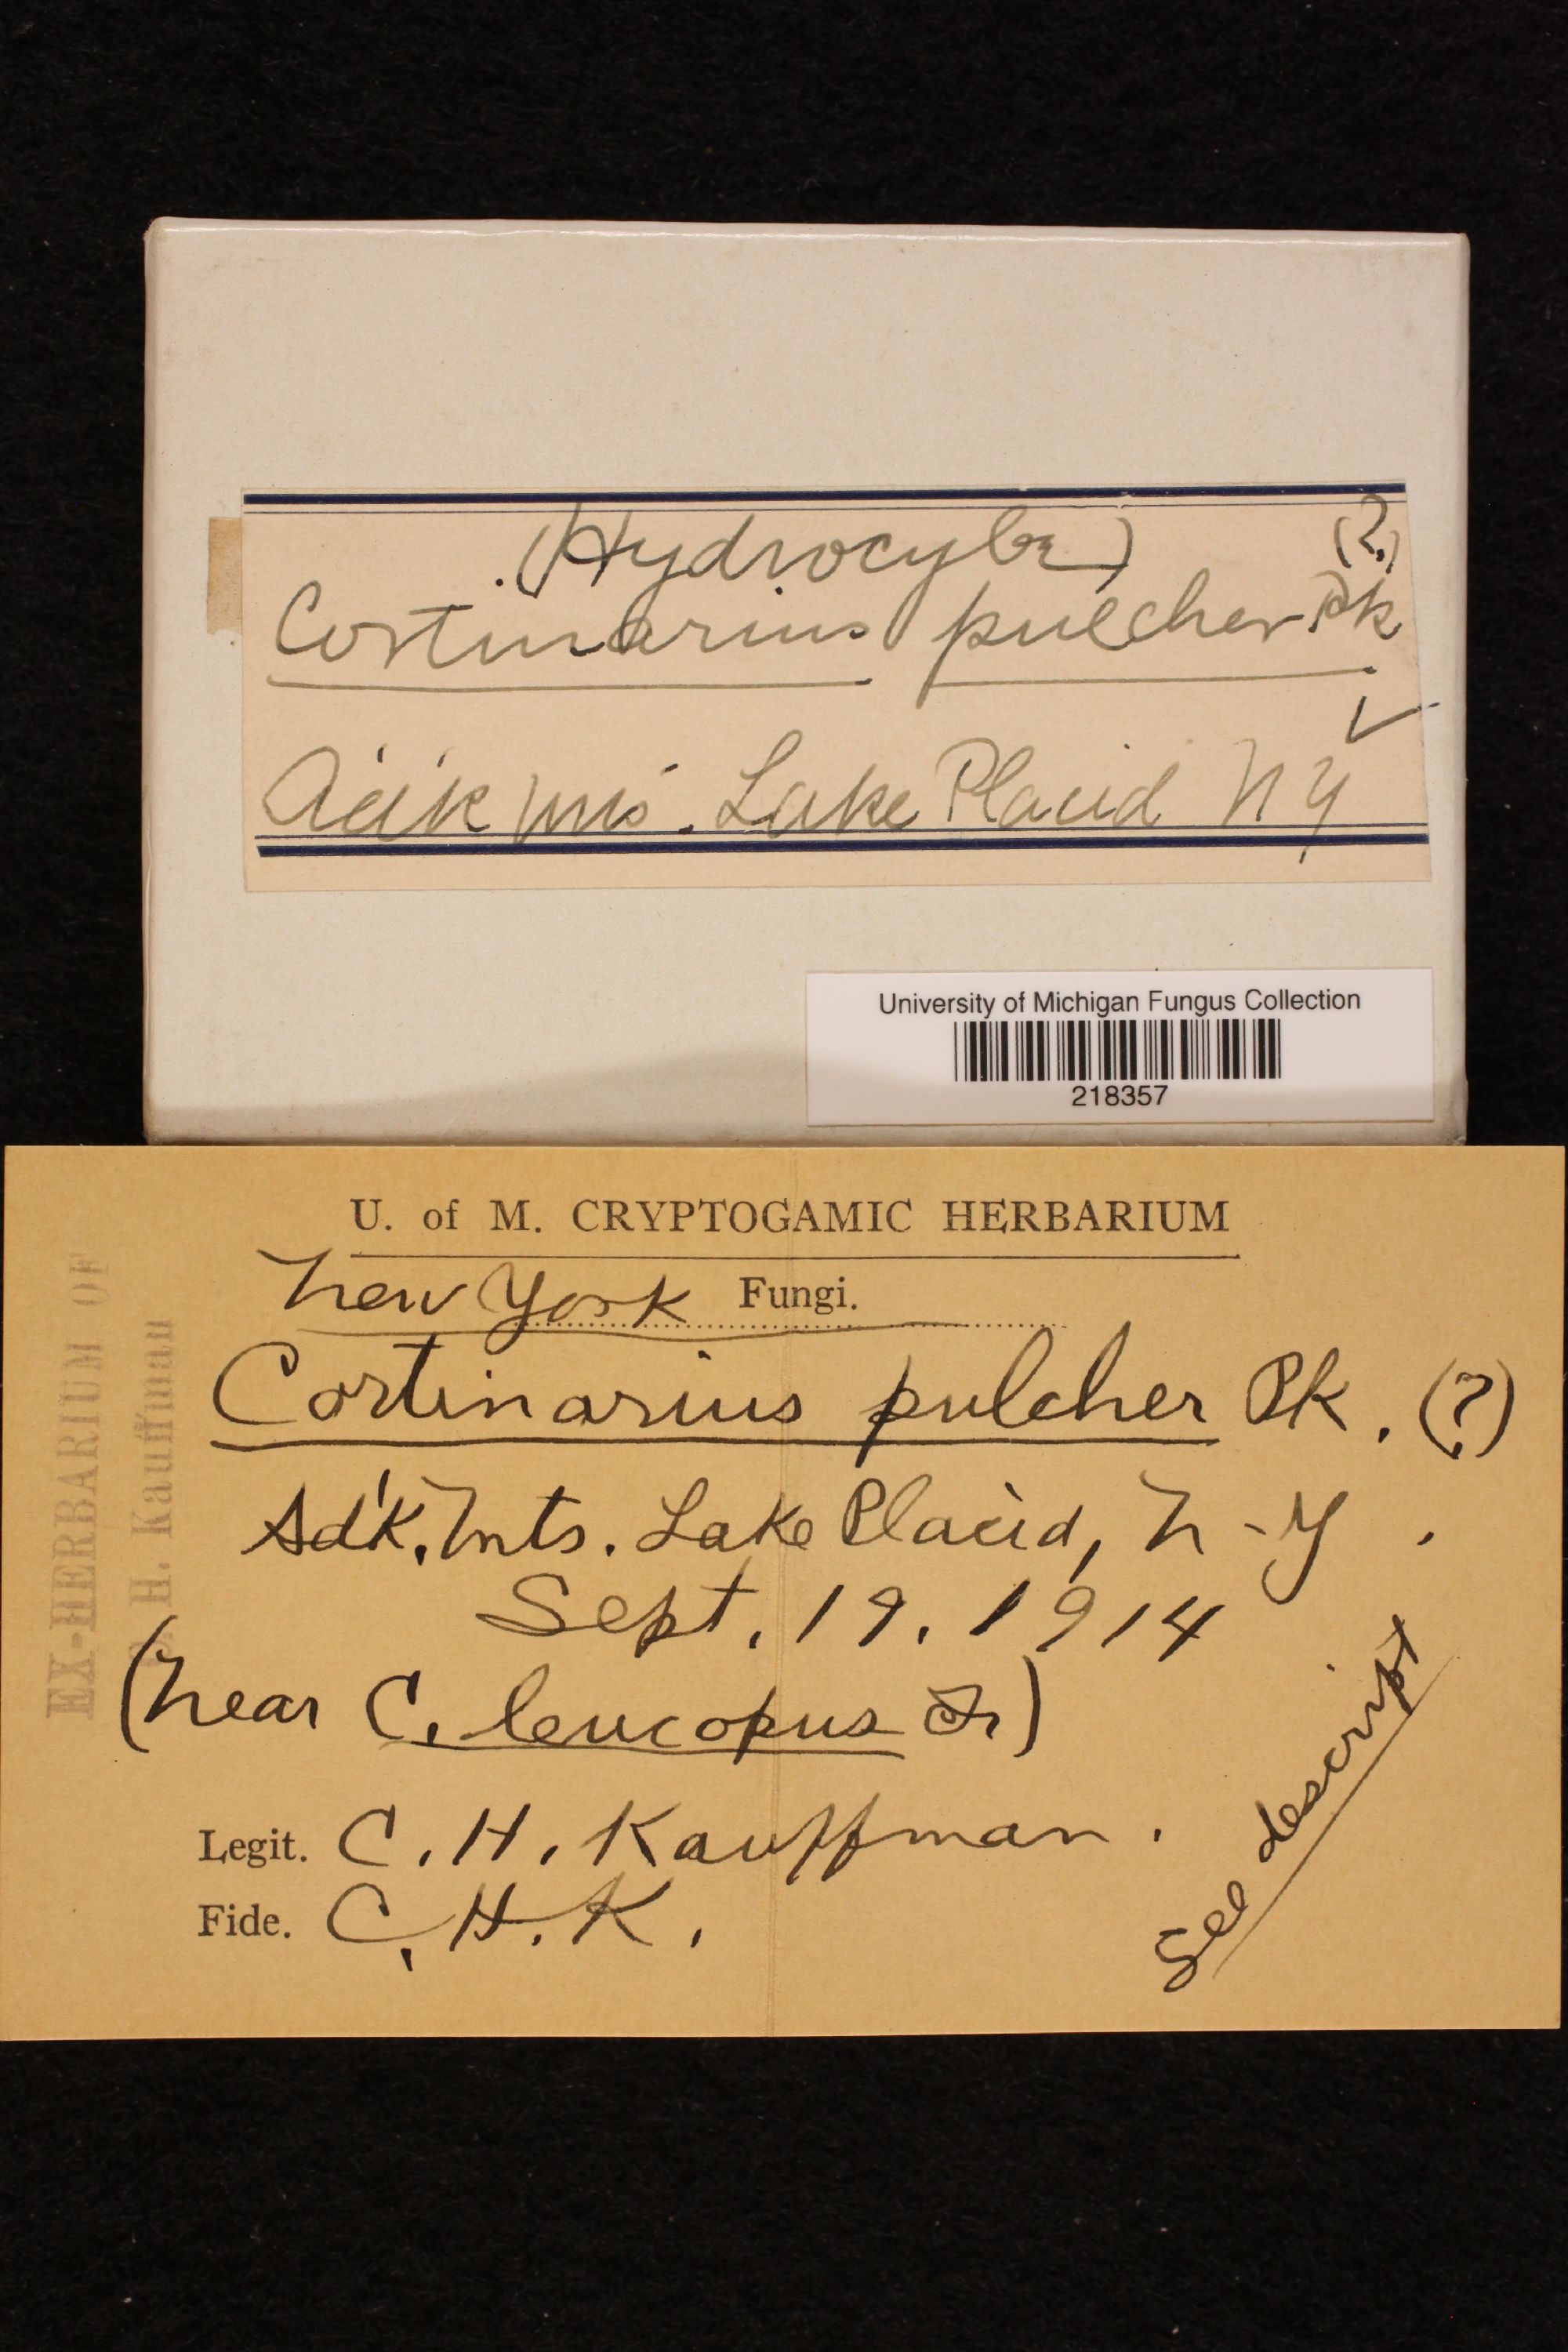 (Hydrocybe) (?)
Cortinarius pulcher Pk
✓
Adk Mts. Lake Placid N Y
University of Michigan Fungus Collection
218357
U. of M. CRYPTOGAMIC HERBARIUM
New York Fungi.
Cortinarius pulcher Pk. (?)
Adk. Mts. Lake Placid, N-Y.
Sept. 19. 1914
(near C. leucopus Fr)
Legit. C. H. Kauffman.
Fide. C. H. K.
See descript
EX-HERBARIUM OF
C. H. Kauffman